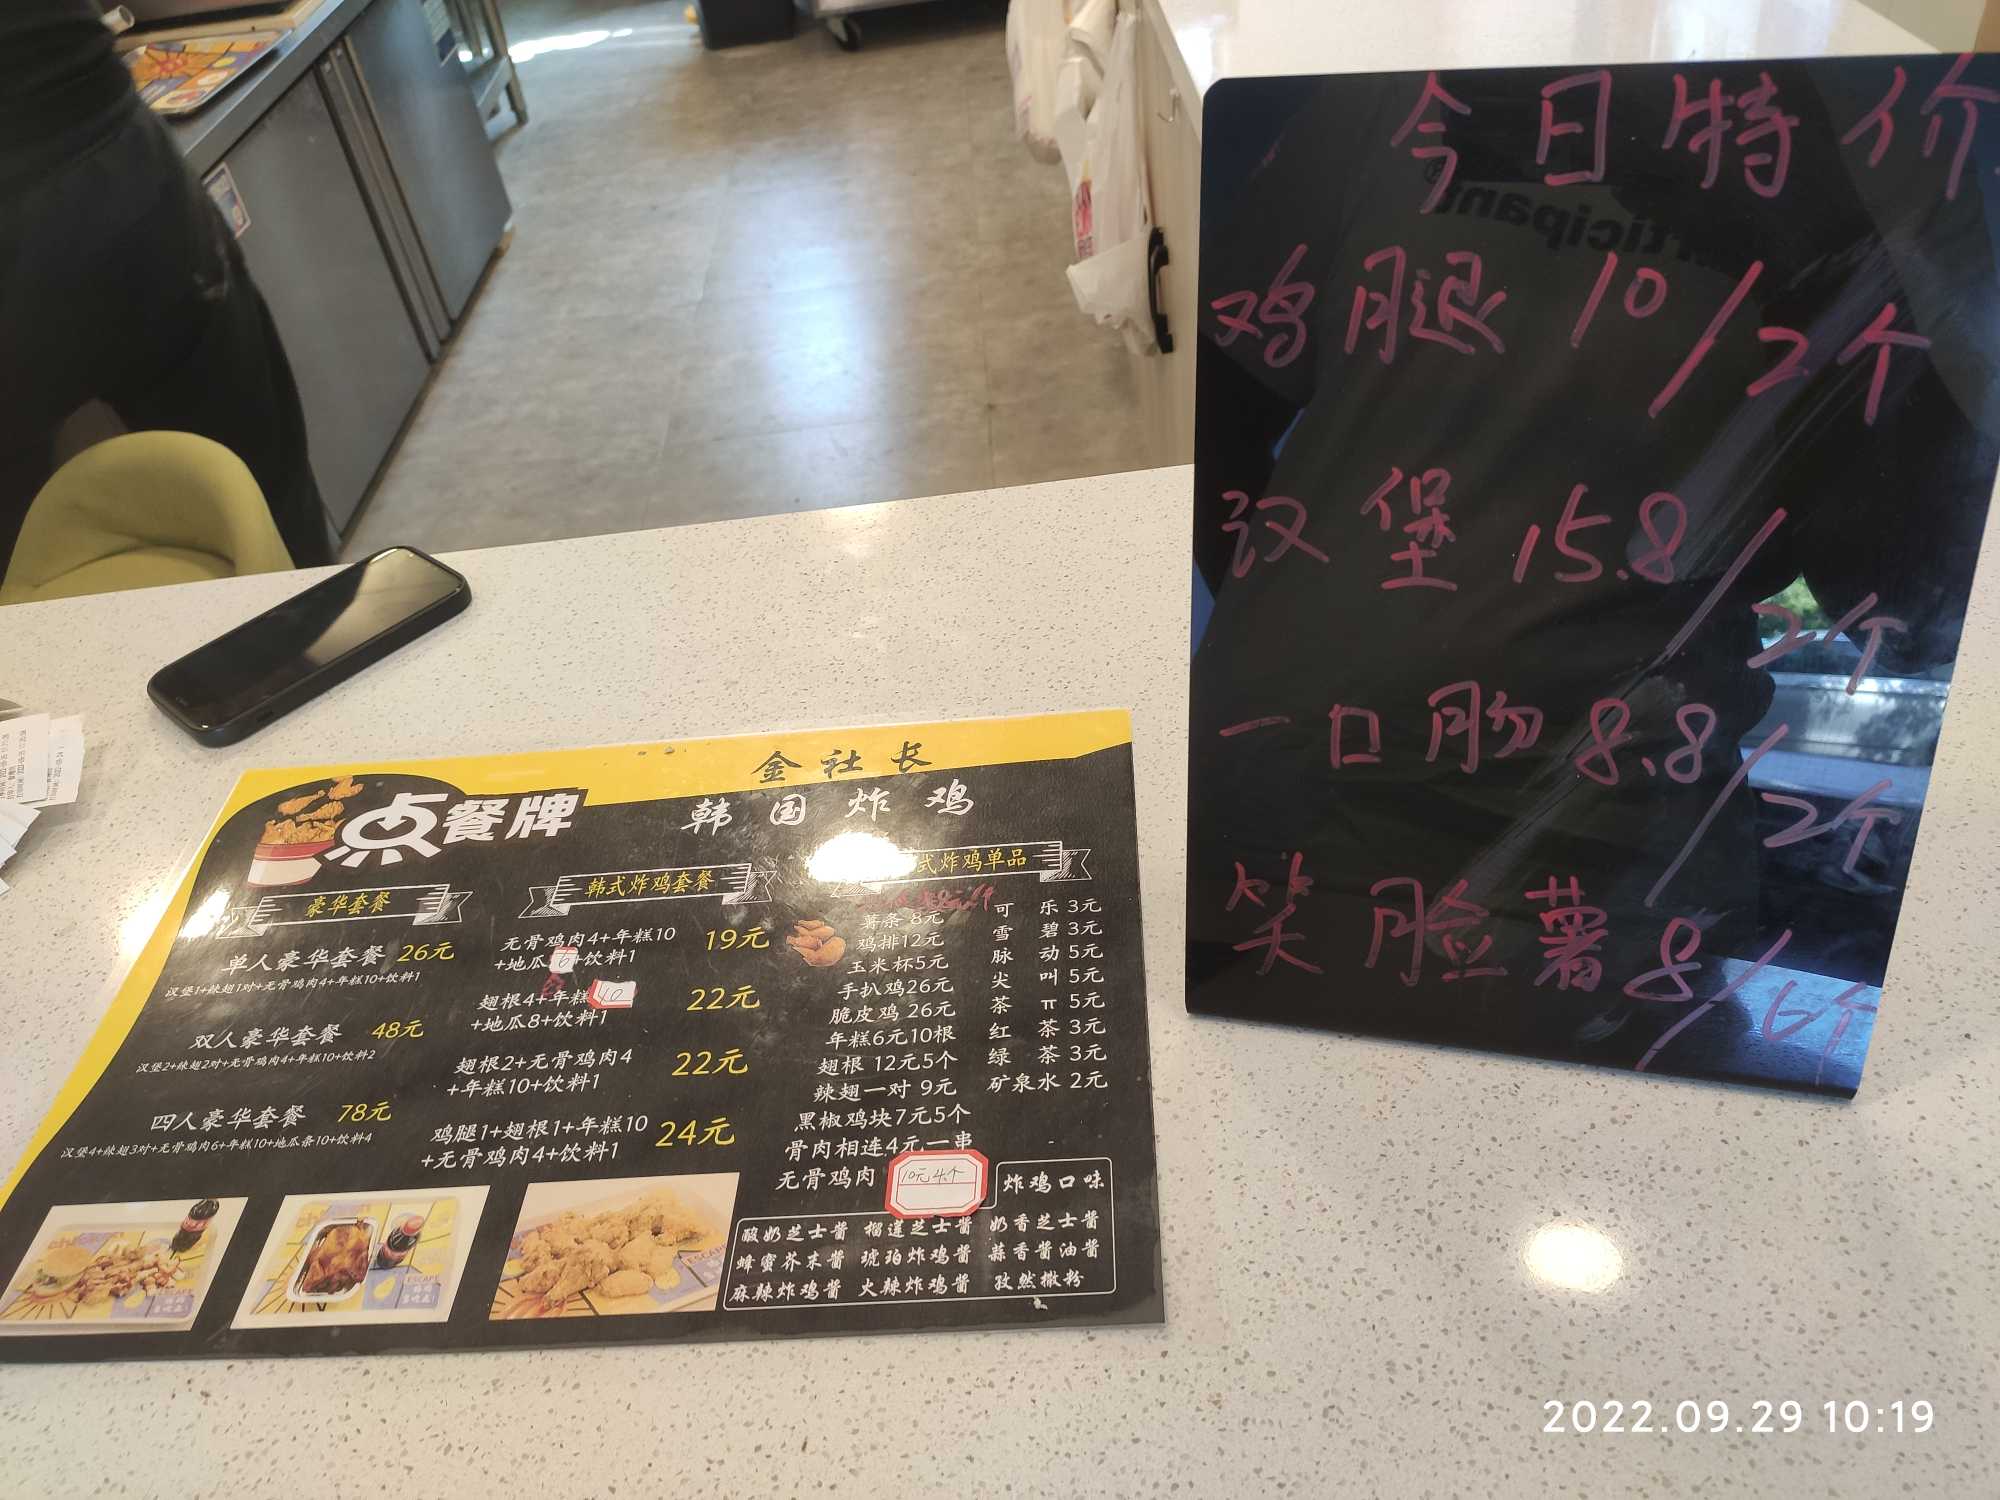 今日特价
鸡腿 10/2个
汉堡 15.8/2个
一口肠 8.8/2个
笑脸薯 8/6个
金社长
韩国炸鸡
点餐牌
豪华套餐
单人豪华套餐 26元
汉堡1+辣翅1对+无骨鸡肉4+年糕10+饮料1
双人豪华套餐 48元
汉堡2+辣翅2对+无骨鸡肉4+年糕10+饮料2
四人豪华套餐 78元
汉堡4+辣翅3对+无骨鸡肉6+年糕10+地瓜条10+饮料4
韩式炸鸡套餐
无骨鸡肉4+年糕10 19元
+地瓜6+饮料1
翅根4+年糕10 22元
+地瓜8+饮料1
翅根2+无骨鸡肉4 22元
+年糕10+饮料1
鸡腿1+翅根1+年糕10 24元
+无骨鸡肉4+饮料1
式炸鸡单品
薯条 8元
鸡排12元
玉米杯5元
手扒鸡26元
脆皮鸡 26元
年糕6元10根
翅根 12元5个
辣翅一对 9元
黑椒鸡块7元5个
骨肉相连4元一串
无骨鸡肉 10元4个
可乐 3元
雪碧 3元
脉动 5元
尖叫 5元
茶π 5元
红茶 3元
绿茶 3元
矿泉水 2元
炸鸡口味
酸奶芝士酱 榴莲芝士酱 奶香芝士酱
蜂蜜芥末酱 琥珀炸鸡酱 蒜香酱油酱
麻辣炸鸡酱 火辣炸鸡酱 孜然撒粉
ESCAPE
ESCAPE
2022.09.29 10:19